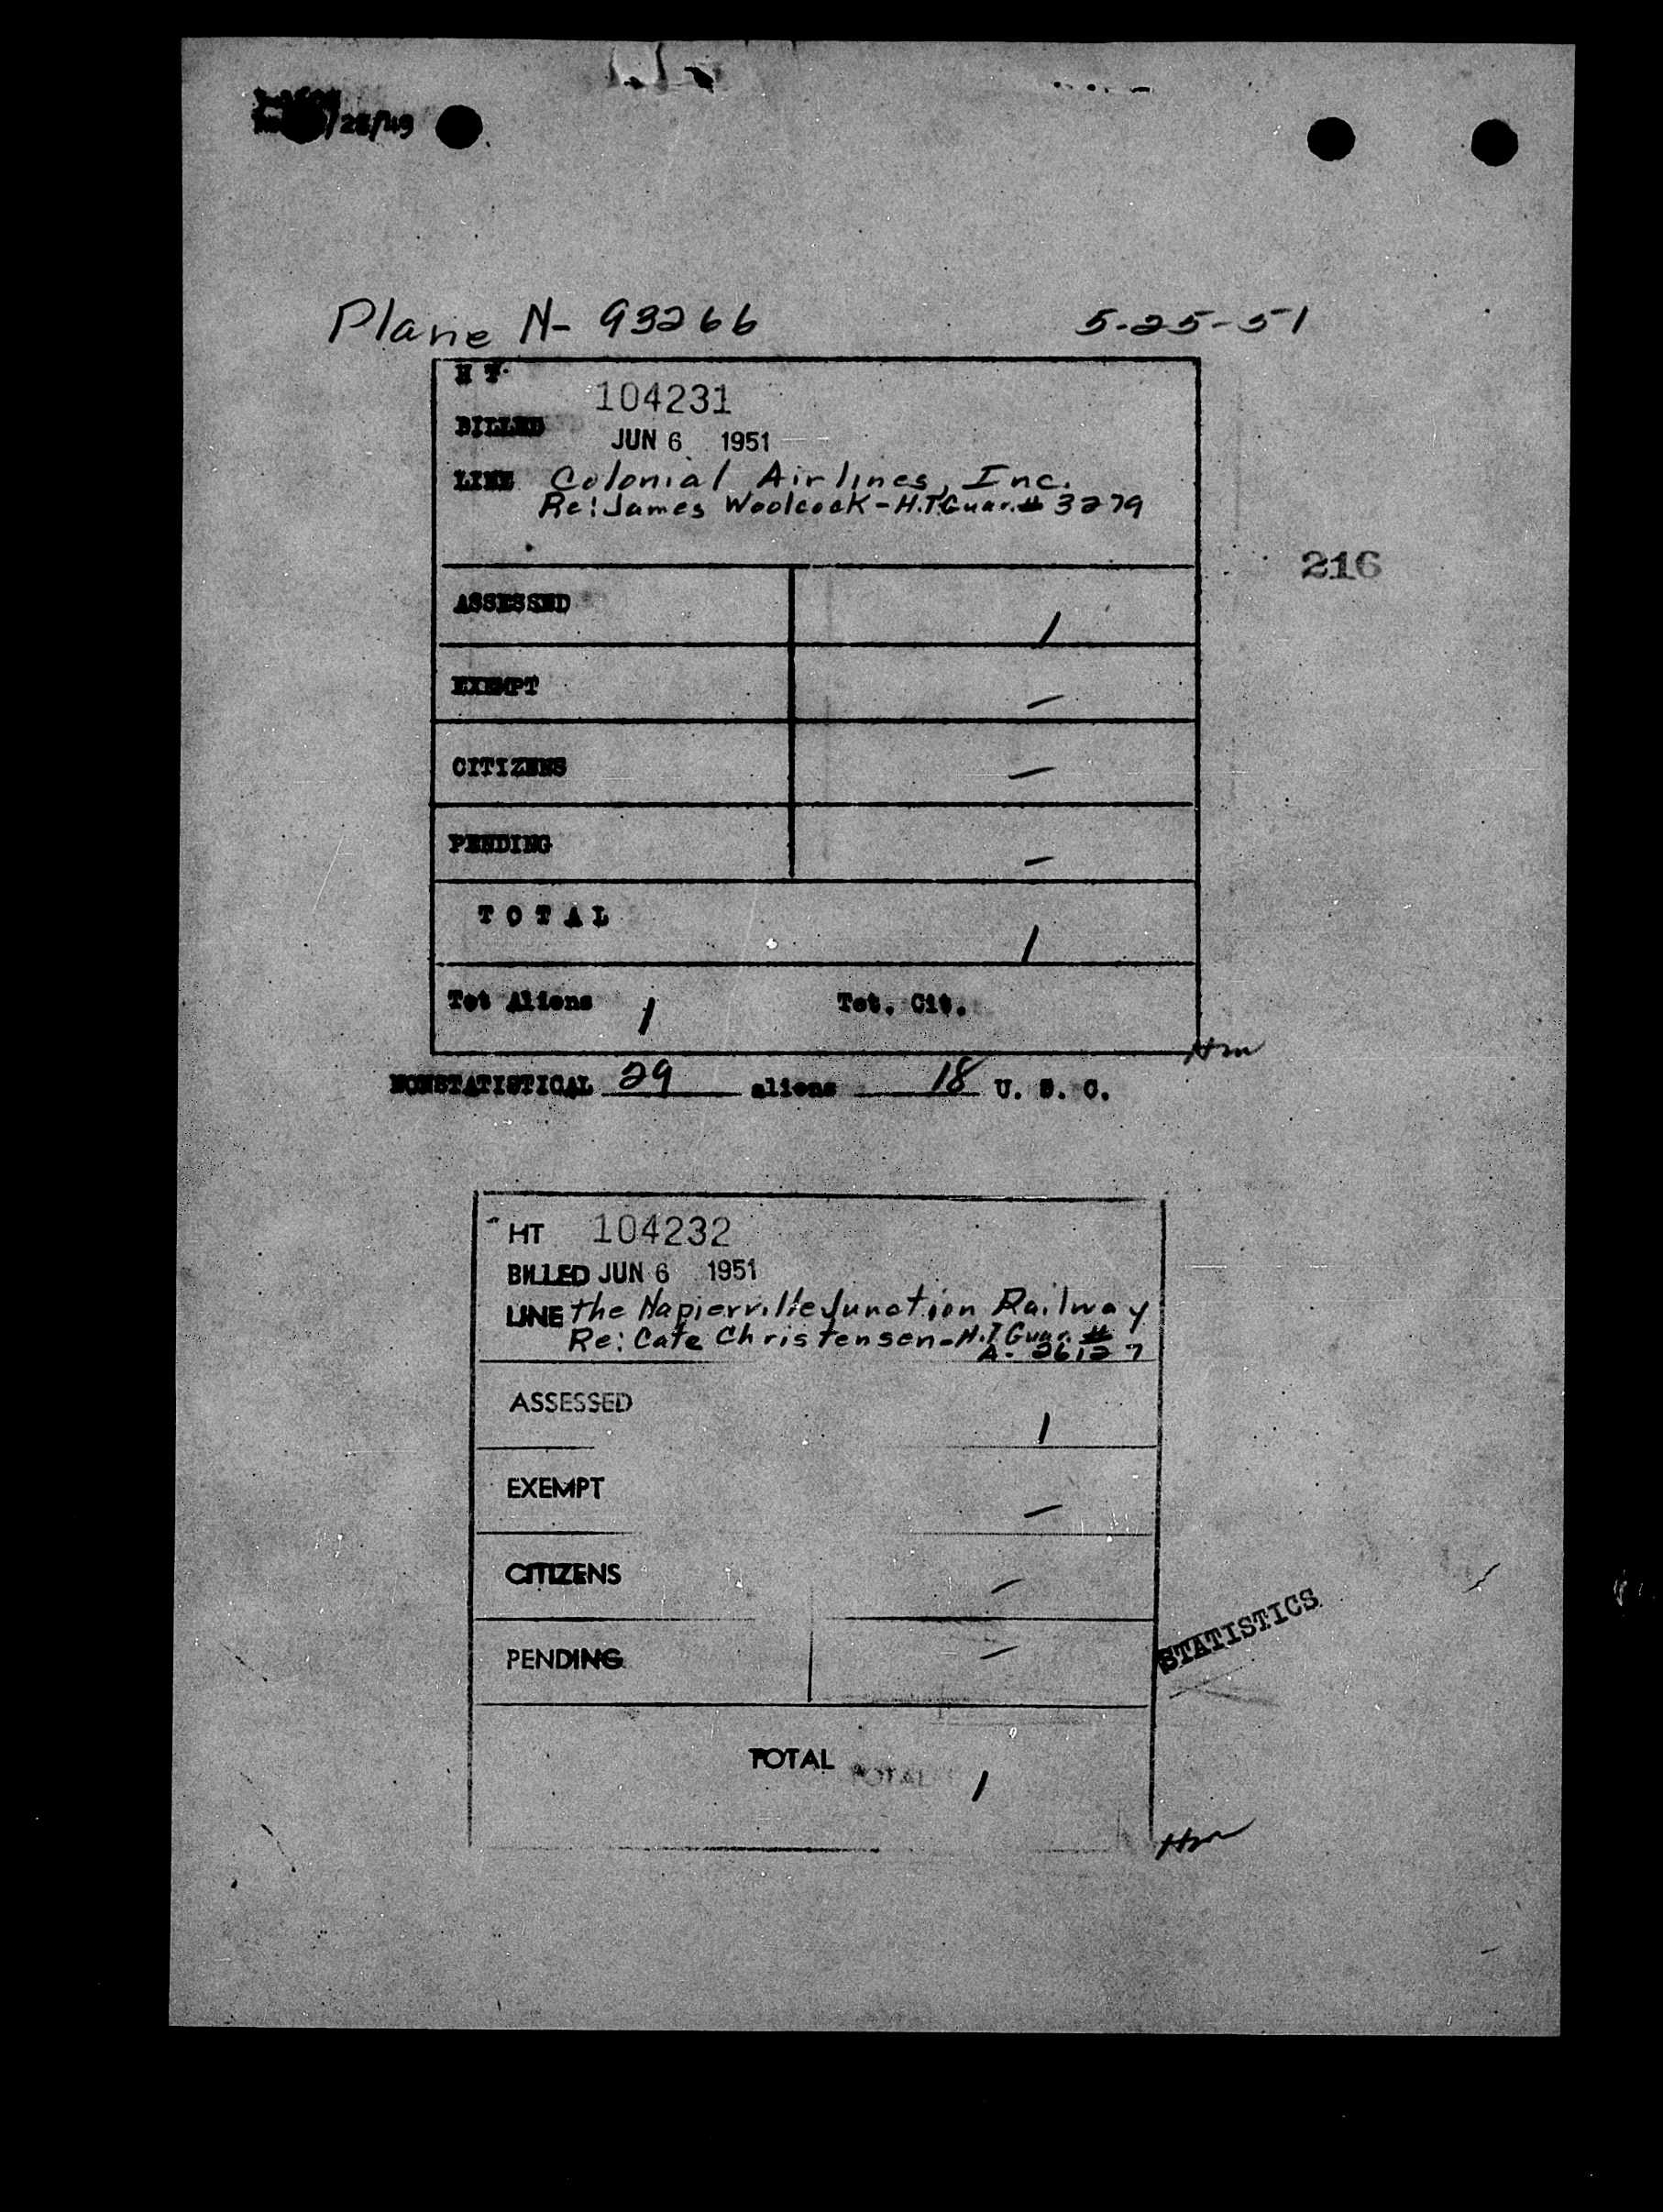 /28/49
Plane N- 93266 5-25-51
H T
104231
BILLED
JUN 6 1951
LINE Colonial Airlines, Inc.
Re: James Woolcock - H.T Guar. # 3279
216
ASSESSED 1
EXEMPT —
CITIZENS —
PENDING —
TOTAL 1
Tot Aliens 1 Tot. Cit.
Hm
NONSTATISTICAL 29 aliens 18 U. S. C.
HT 104232
BILLED JUN 6 1951
LINE the Napierville Junction Railway
Re: Cate Christensen - H.T Guar. #
A- 26127
ASSESSED 1
EXEMPT —
CITIZENS —
STATISTICS
PENDING —
TOTAL TOTAL 1
Hm